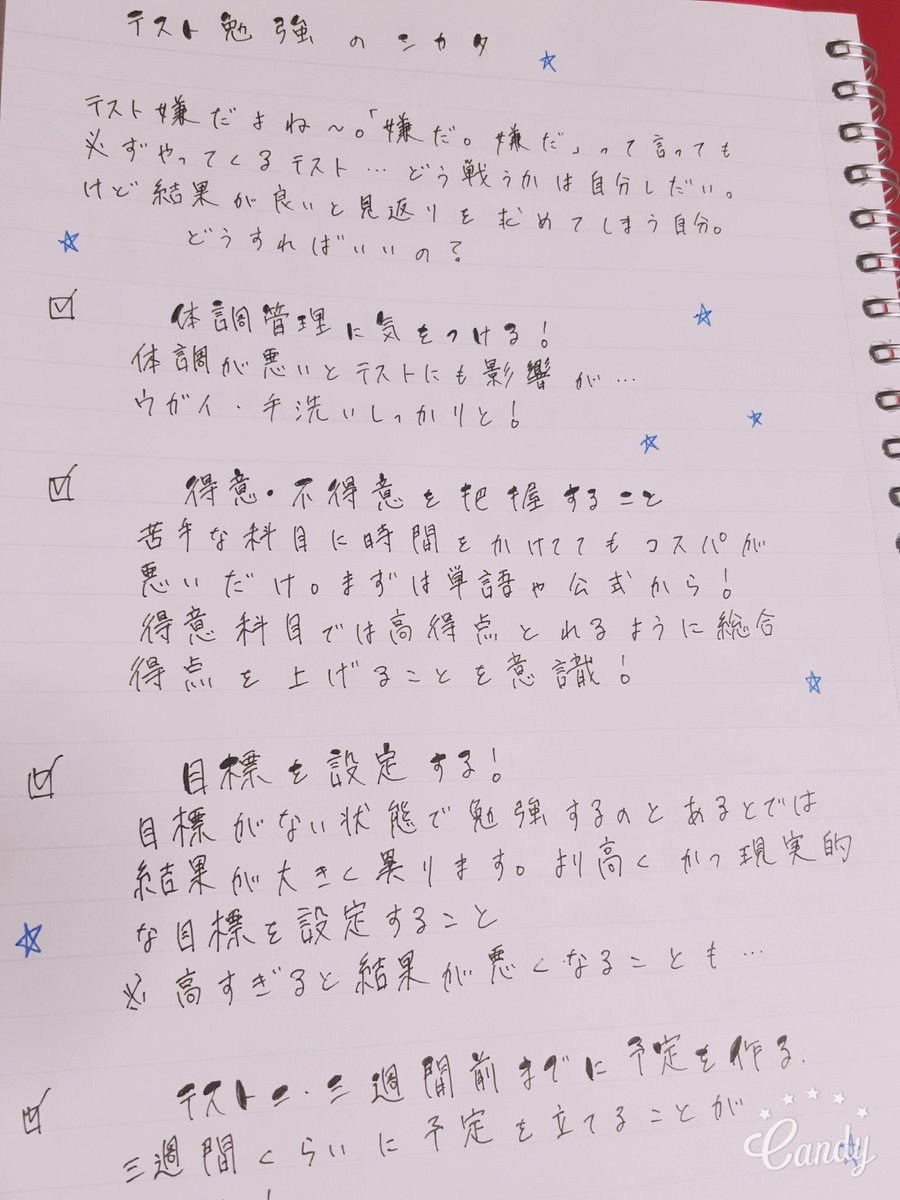 テスト勉強のシカタ
テスト嫌だよね〜。「嫌だ。嫌だ」って言っても
必ずやってくるテスト…どう戦うかは自分しだい。
けど結果が良いと見返りを求めてしまう自分。
どうすればいいの?
体調管理に気をつける!
体調が悪いとテストにも影響が…
ウガイ・手洗いしっかりと!
得意・不得意を把握すること
苦手な科目に時間をかけててもコスパが
悪いだけ。まずは単語や公式から!
得意科目では高得点とれるように総合
得点を上げることを意識!
目標を設定する!
目標がない状態で勉強するのとあるとでは
結果が大きく異ります。より高くかつ現実的
な目標を設定すること
※高すぎると結果が悪くなることも…
テスト二・三週間前までに予定を作る.
三週間くらいに予定を立てることが
Candy